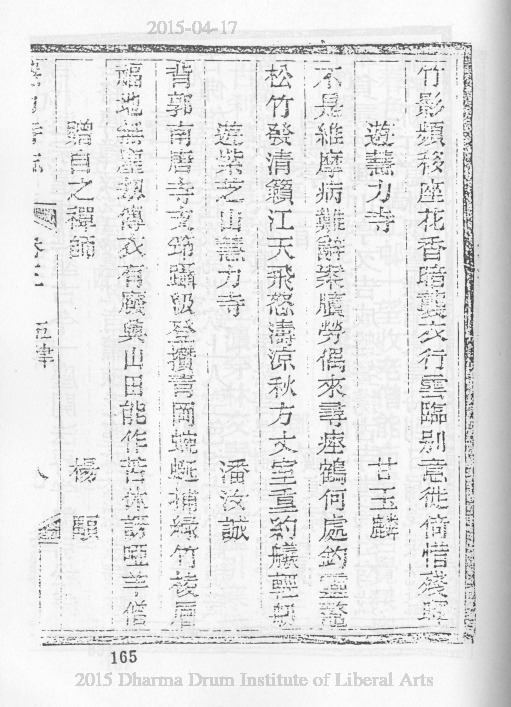 2015-04-17
竹影頻移座花香暗襲衣行雲臨別意徙倚惜殘
遊慧力寺 甘玉麟
不是維摩病難辭案牘勞偶來尋瘞鶴何處釣靈鼇
松竹發清籟江天飛怒濤涼秋方丈室重約艤輕
遊紫芝山慧力寺 潘汝誠
背郭南唐寺支筇躡級登攢青岡蜿蜒補綠竹稜層
福地無塵刼傳衣有廢興山田能作苦休謗啞羊僧
贈自之禪師 楊
五律
165
2015 Dharma Drum Institute of Liberal Arts